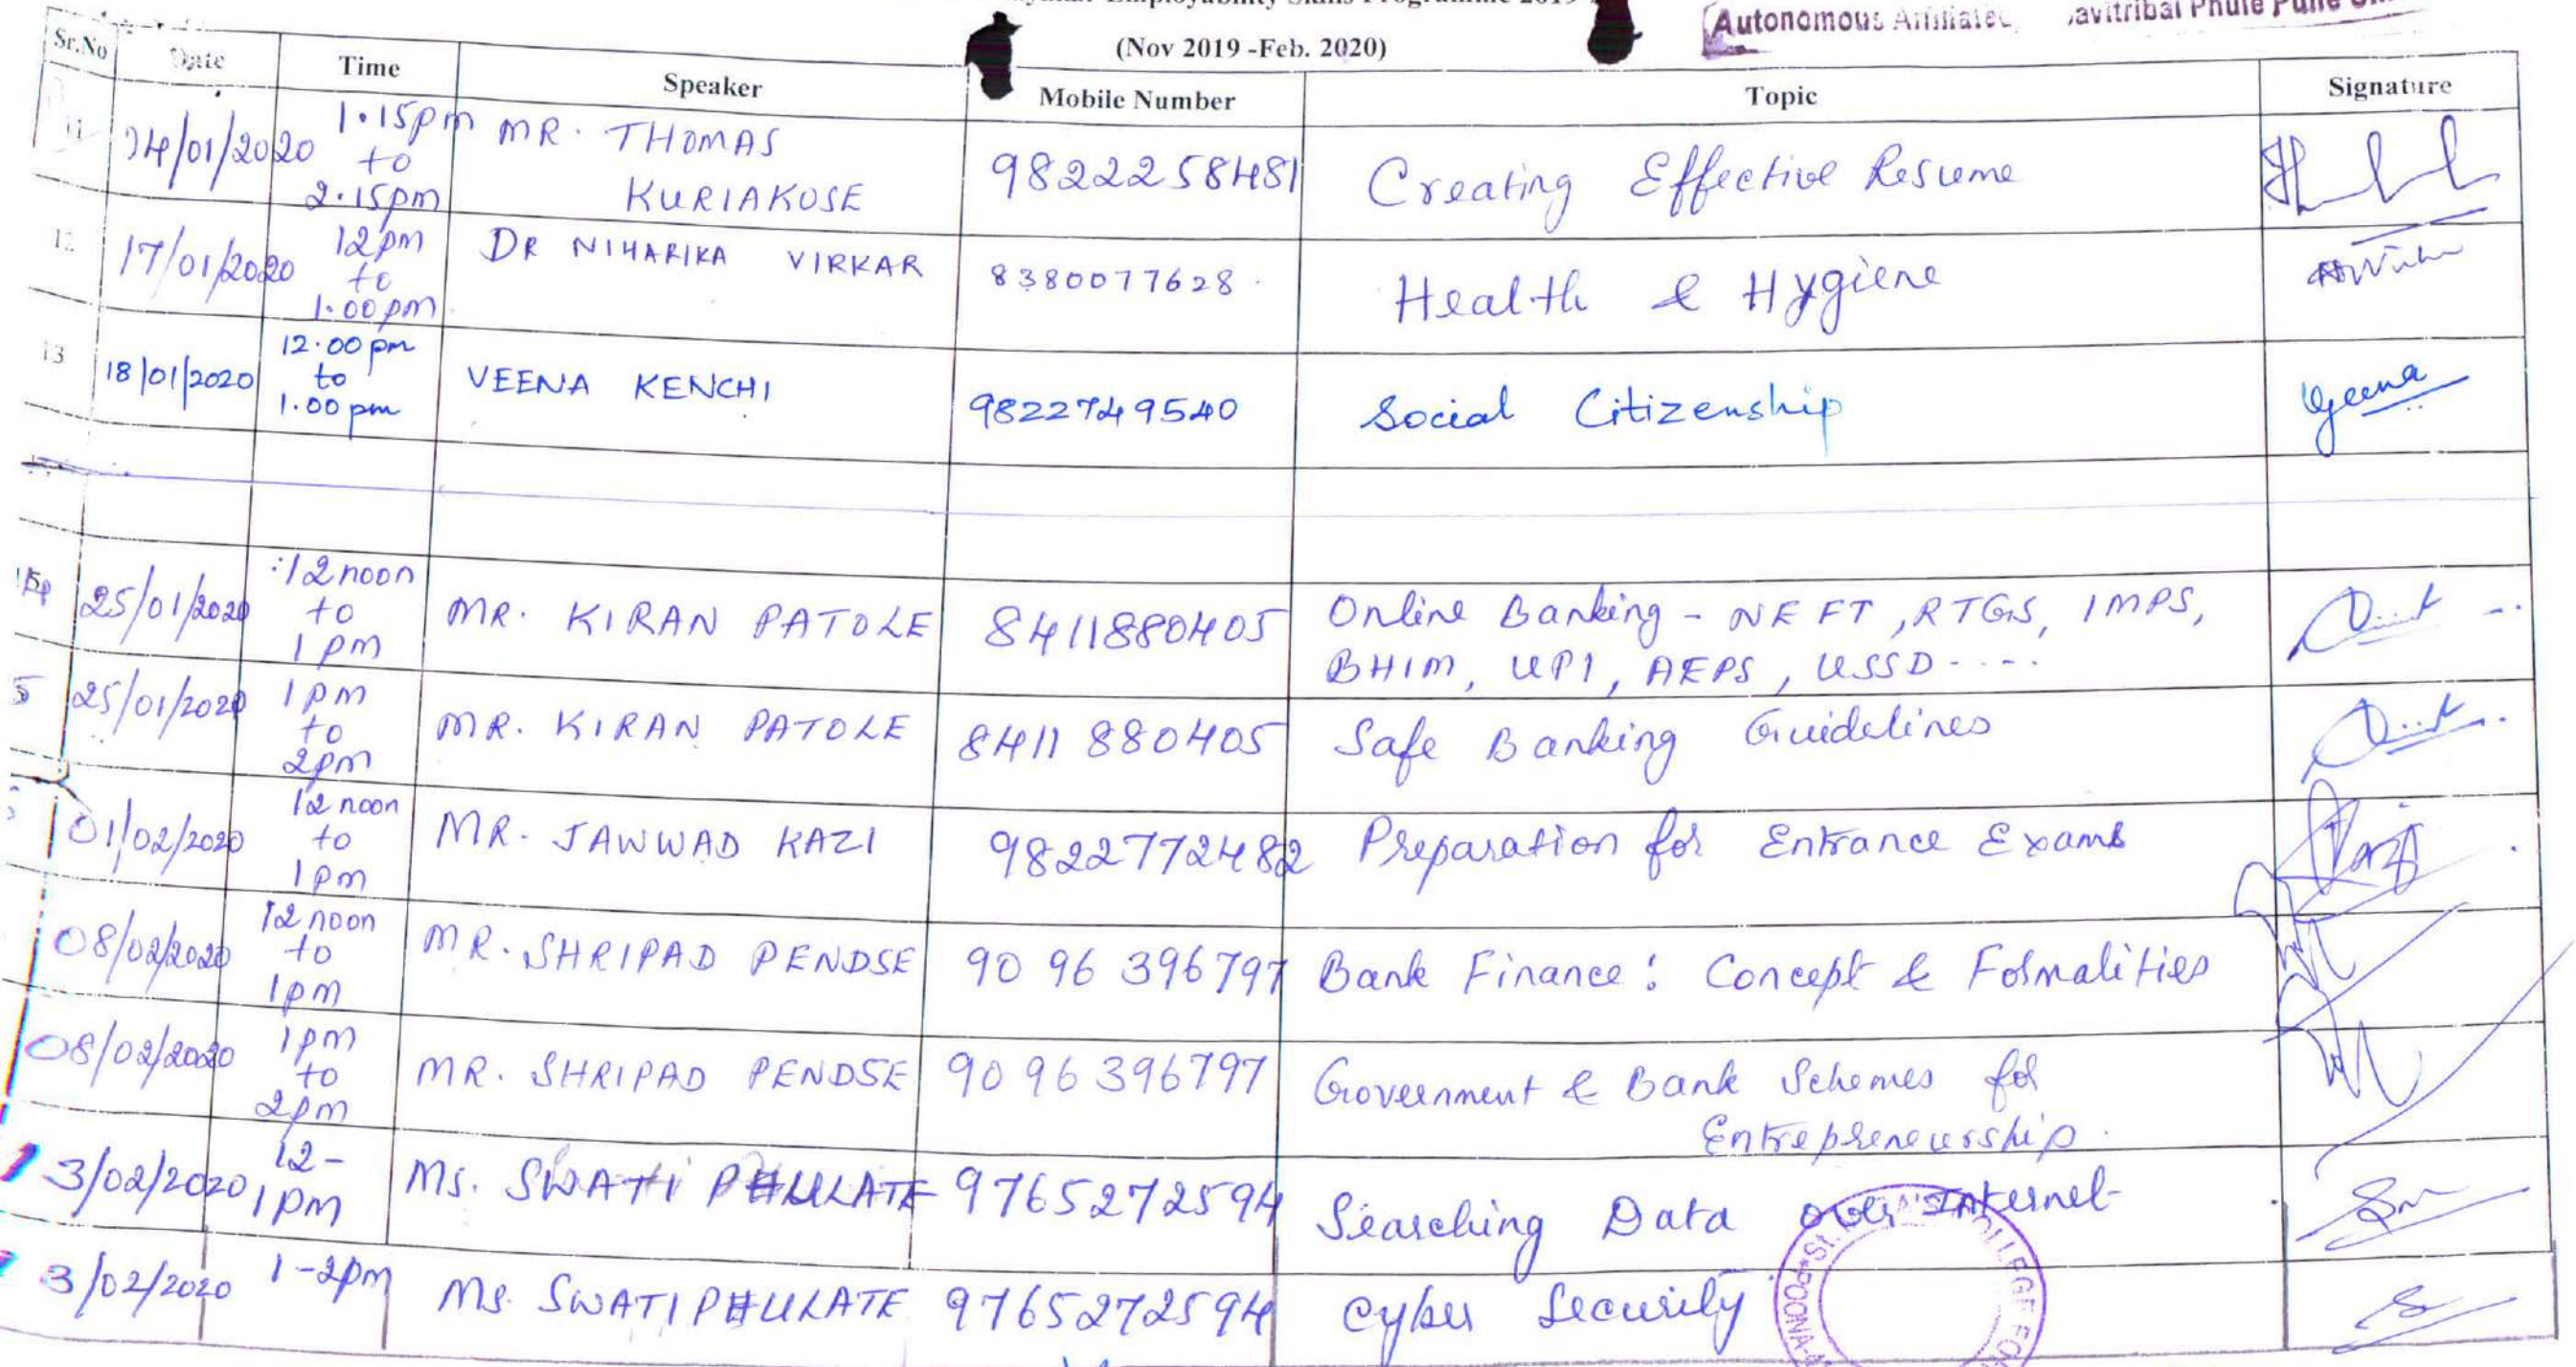 Employability Skills Programme 2019
Autonomous Affiliated Savitribai Phule Pune
(Nov 2019 -Feb. 2020)
Sr.No Date Time Speaker Mobile Number Topic Signature
11 04/01/2020 1.15pm to 2.15pm MR. THOMAS KURIAKOSE 9822258481 Creating Effective Resume
12 17/01/2020 12pm to 1.00pm DR NIHARIKA VIRKAR 8380077628 Health & Hygiene
13 18/01/2020 12.00pm to 1.00pm VEENA KENCHI 9822749540 Social Citizenship Veena
25/01/2020 12 noon to 1 pm MR. KIRAN PATOLE 8411880405 Online Banking - NEFT, RTGS, IMPS,
BHIM, UPI, AEPS, USSD ----
5 25/01/2020 1pm to 2pm MR. KIRAN PATOLE 8411 880405 Safe Banking Guidelines
01/02/2020 12 noon to 1pm MR. JAWWAD KAZI 9822772482 Preparation for Entrance Exams Kazi
08/02/2020 12 noon to 1pm MR. SHRIPAD PENDSE 90 96 396797 Bank Finance: Concept & Formalities
08/02/2020 1pm to 2pm MR. SHRIPAD PENDSE 90 96 396797 Government & Bank Schemes for
Entrepreneurship.
3/02/2020 12-1pm Ms. SWATI PHULATE 9765272594 Searching Data over Internet
3/02/2020 1-2pm Ms. SWATI PHULATE 9765272594 Cyber Security